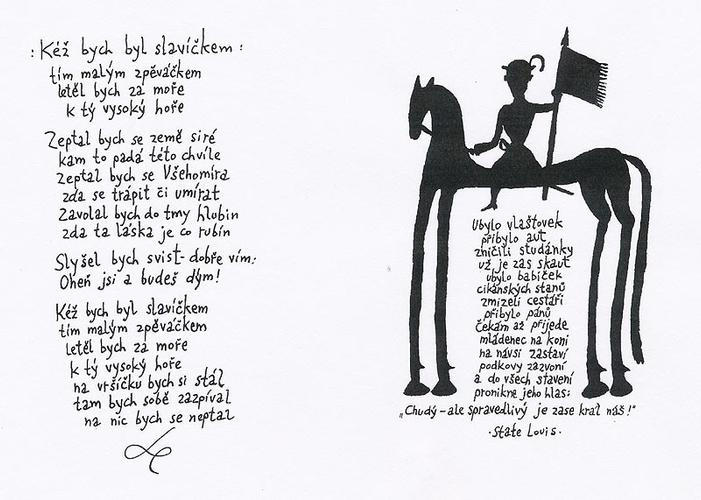 : Kéž bych byl slavíčkem :
tím malým zpěváčkem
letěl bych za moře
k tý vysoký hoře
Zeptal bych se země siré
kam to padá této chvíle
Zeptal bych se Všehomíra
zda se trápit či umírat
Zavolal bych do tmy hlubin
zda ta láska je co rubín
Slyšel bych svist - dobře vím:
Oheň jsi a budeš dým!
Kéž bych byl slavíčkem
tím malým zpěváčkem
letěl bych za moře
k tý vysoký hoře
na vršíčku bych si stál
tam bych sobě zazpíval
na nic bych se neptal
Ubylo vlaštovek
přibylo aut
zničili studánky
už je zas skaut
ubylo babiček
cikánských stanů
zmizeli cestáři
přibylo pánů
čekám až přijede
mládenec na koni
na návsi zastaví
podkovy zazvoní
a do všech stavení
pronikne jeho hlas:
„Chudý - ale spravedlivý je zase král náš!"
· State Louis ·